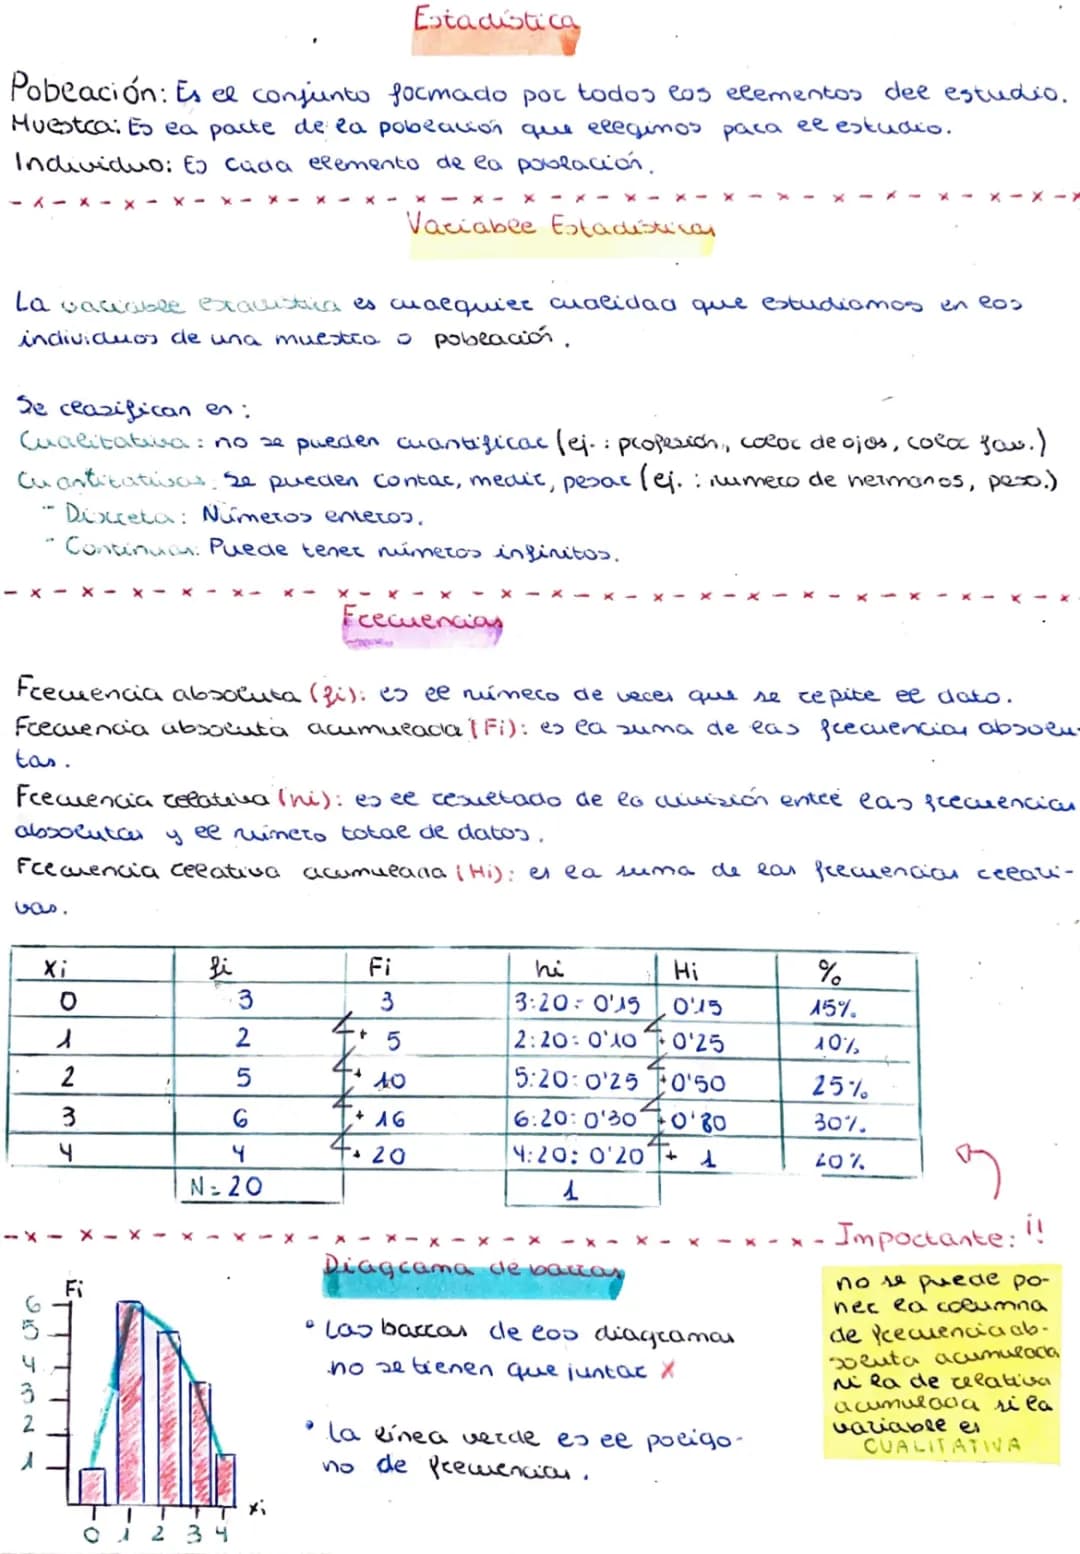 Estadística
Población: Es el conjunto formado por todos los elementos del estudio.
Muestra: Es la parte de la población que elegimos para el estudio.
Individuo: Es cada elemento de la población.
Variable Estadísticas
La variable estadística es cualquier cualidad que estudiamos en los
individuos de una muestra o población.
Se clasifican en:
Cualitativa: no se pueden cuantificar (ej.: profesión, color de ojos, color fav.)
Cuantitativas: Se pueden contar, medir, pesar (ej.: numero de hermanos, peso.)
- Discreta: Números enteros.
- Continuas: Puede tener números infinitos.
Frecuencias
Frecuencia absoluta (fi): es el número de veces que se repite el dato.
Frecuencia absoluta acumulada (Fi): es la suma de las frecuencias absolu-
tas.
Frecuencia relativa (hi): es el resultado de la división entre las frecuencias
absolutas y el número total de datos.
Frecuencia relativa acumulada (Hi): es la suma de las frecuencias relati-
vas.
Xi fi Fi hi Hi %
0 3 3 3:20= 0'15 0'15 15%
1 2 + 5 2:20= 0'10 + 0'25 10%
2 5 + 10 5:20= 0'25 + 0'50 25%
3 6 + 16 6:20= 0'30 + 0'80 30%
4 4 + 20 4:20= 0'20 + 1 20%
N=20 1
Importante: !!
no se puede po-
ner la columna
de frecuencia ab-
soluta acumulada
ni la de relativa
acumulada si la
variable es
CUALITATIVA
Diagrama de barras
• Las barras de los diagramas
no se tienen que juntar X
• La línea verde es el polígo-
no de frecuencias.
Fi
6
5
4
3
2
1
xi
0 1 2 3 4